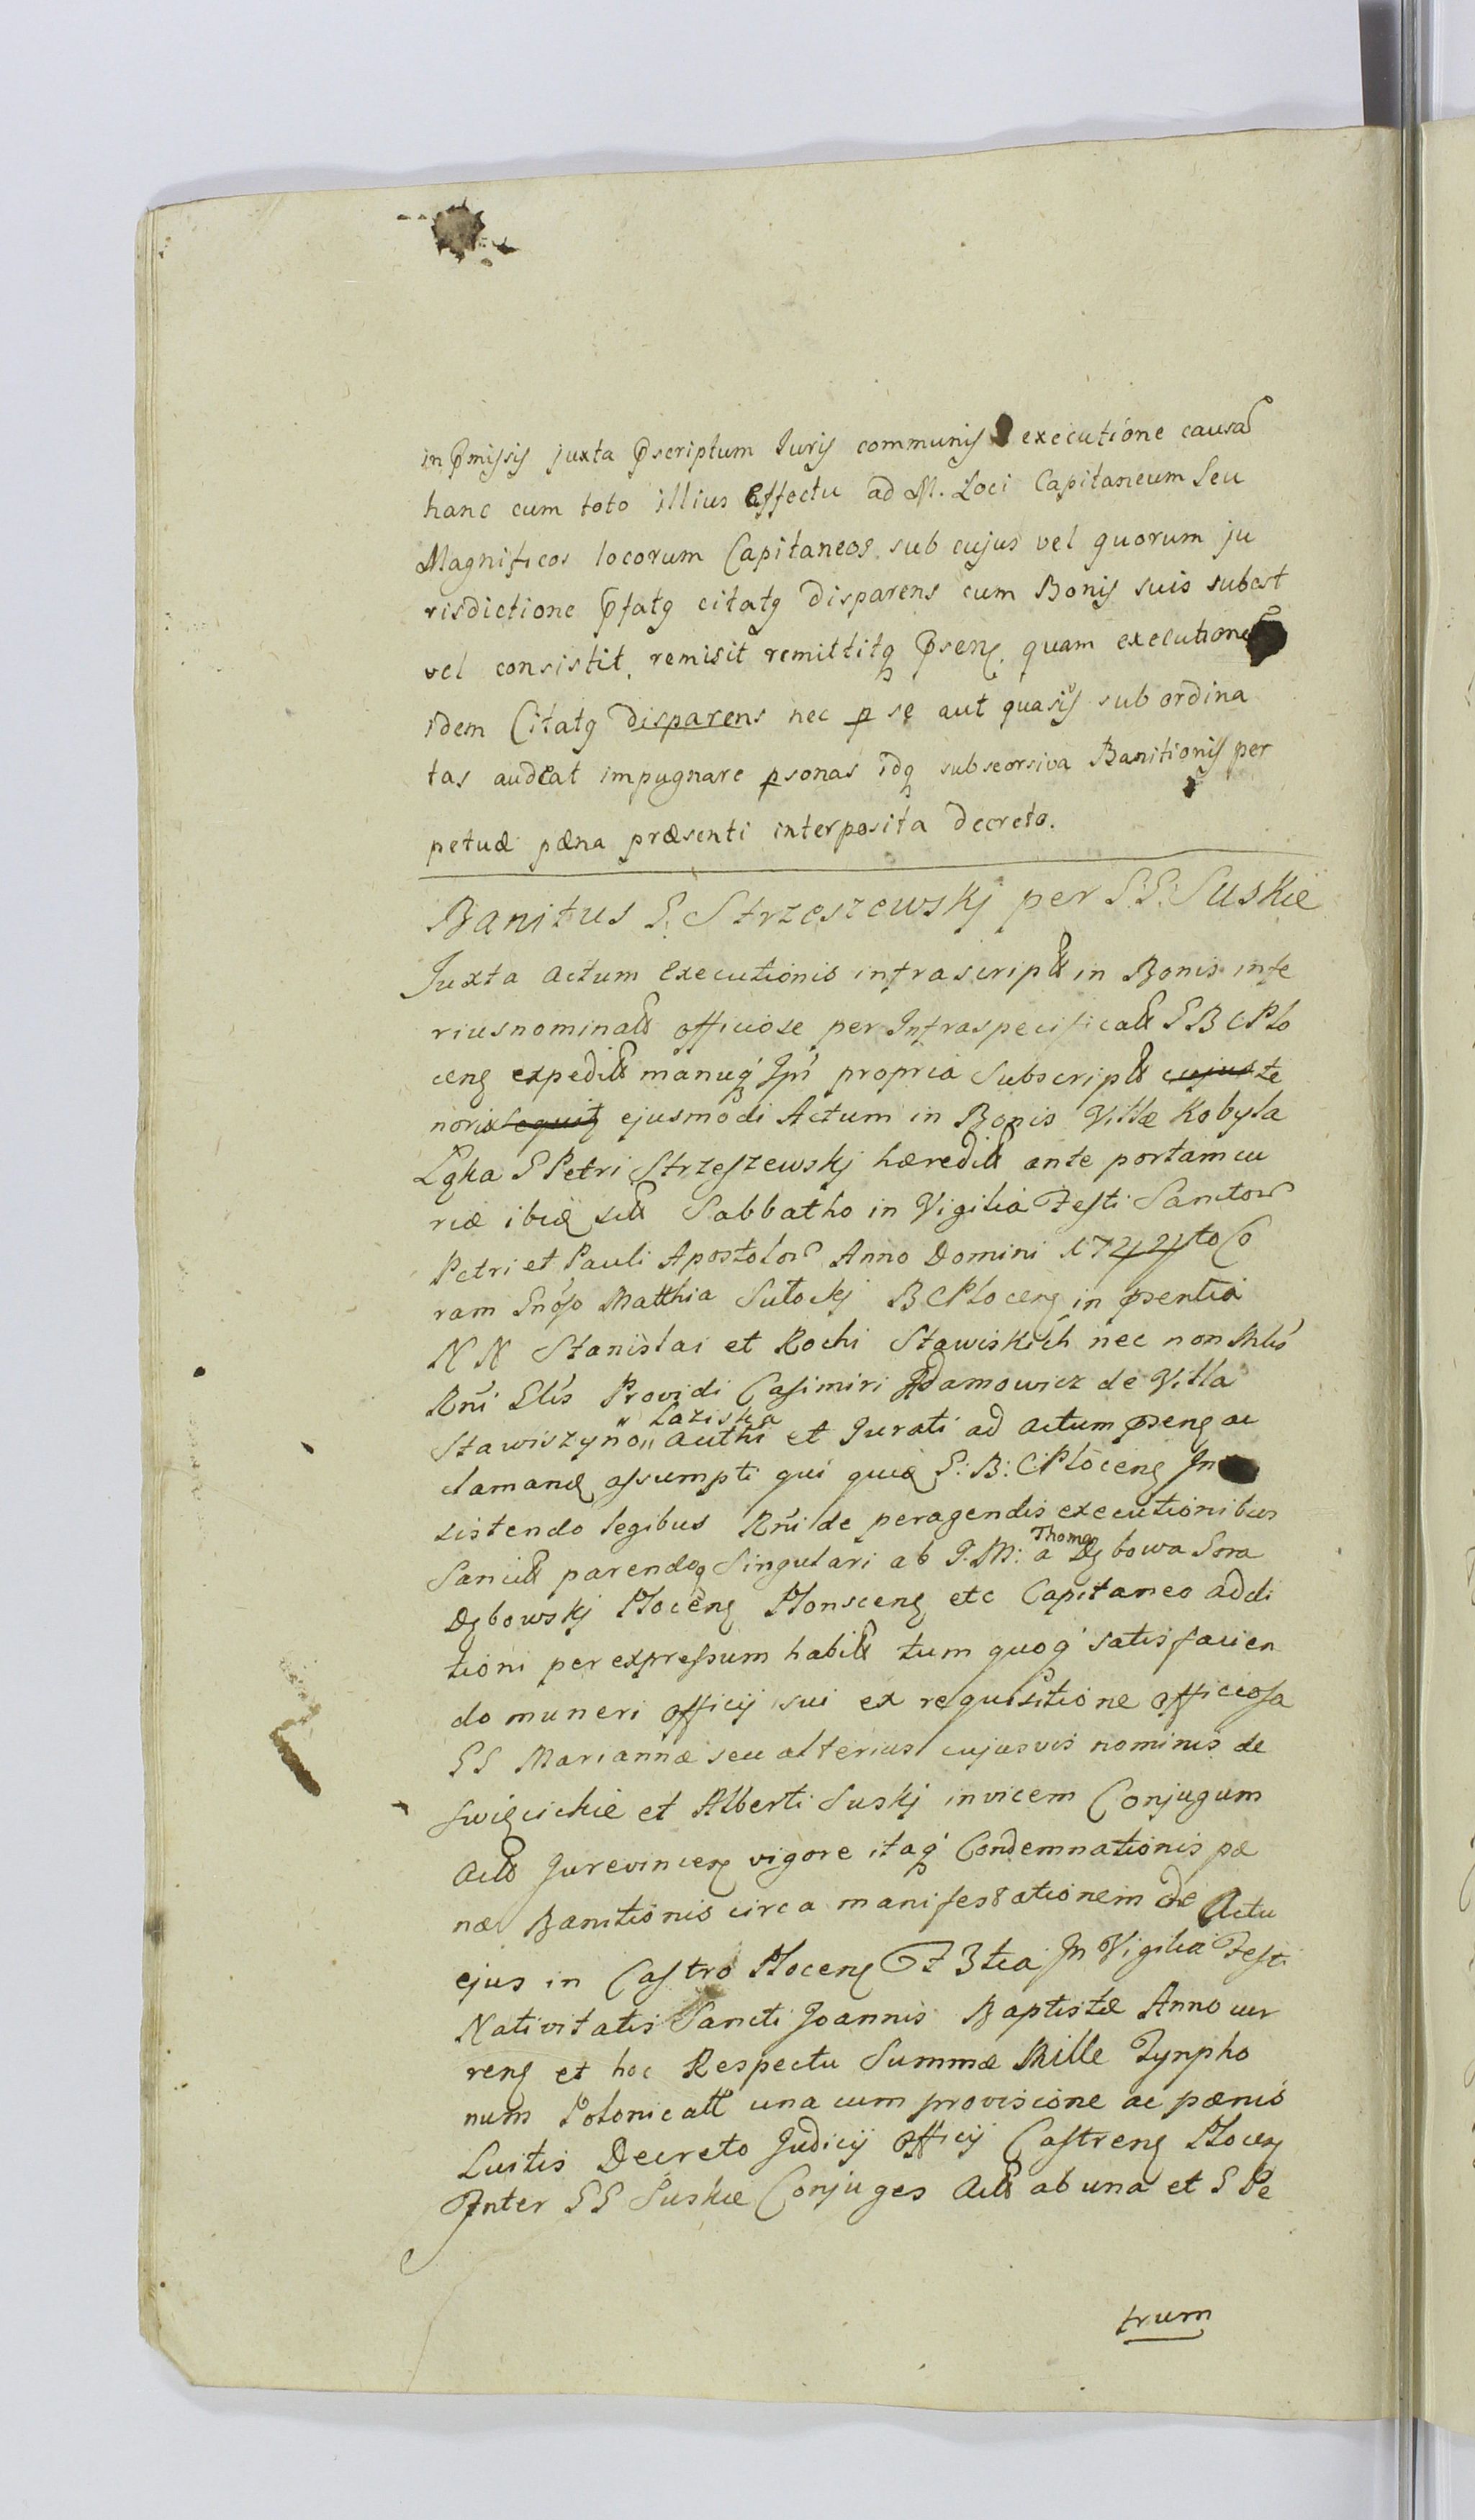 in p̄missis juxta p̄scriptum Juris communis executione causa
hanc cum toto illius Effectu ad M. Loci Capitaneum Seu
Magnificos locorum Capitaneos sub cujus vel quorum ju
risdictione p̄fatq citatq disparens cum Bonis suis subest
vel consistit, remisit remittitq p̄senq. quam executione
idem Citatq disparens nec p se aut quasvis subordina
tas audeat impugnare psonas idq sub seorsiva Banitionis per
petuæ pæna præsenti interposita decreto.
Banitus G. Strzeszewskj per G.G. Suskie
Juxta Actum Executionis infrascript in Bonis infe
riusnominat officiose per Infraspecificat G B C Plo
cenq expedit manuq Ipı́ propria Subscript cujus te
noris sequitq ejusmodi Actum in Bonis Villæ Kobyla
Łąka G Petri Strzeszewskj hæredit ante portam cu
riæ ibiq sit Sabbatho in Vigilia Festi Sanctor
Petri et Pauli Apostolor Anno Domini 1744to Co
ram Gnoso Matthia Sutockj B C Plocenq in p̄sentia
N N Stanislai et Rochi Stawiskich nec non Mlis
Rnı́ Glis Providi Casimiri Adamowicz de Villa
Stawiszyno „ Laziska „ acthi et Jurati ad actum p̄senq ac
clamanq assumpti qui quiq G: B: C: Plocenq In
sistendo legibus Rnı́ de peragendis executionibus
Sancit parendoq Singulari ab I. M: Thoma a Dębowa Gora
Dębowskj Plocenq Plonscenq etc Capitaneo addi
tioni per expressum habit tum quoq satisfacien
do muneri officij sui ex requisitione officiosa
G G Mariannæ seu alterius cujusvis nominis de
Swięcickie et Alberti Suskj invicem Conjugum
Act Jurevincenq vigore itaq Condemnationis pæ
næ Banitionis circa manifestationem de Actu
ejus in Castro Plocenq F 3tia In Vigilia Festi
Nativitatis Sancti Joannis Baptistæ Anno cur
renq et hoc Respectu Summæ Mille Tynpho
num Polonicatt una cum provisione ac pænis
Luitis Decreto Judicij Officij Castrenq Plocenq
Inter G G Suskie Conjuges Act ab una et G Pe
trum